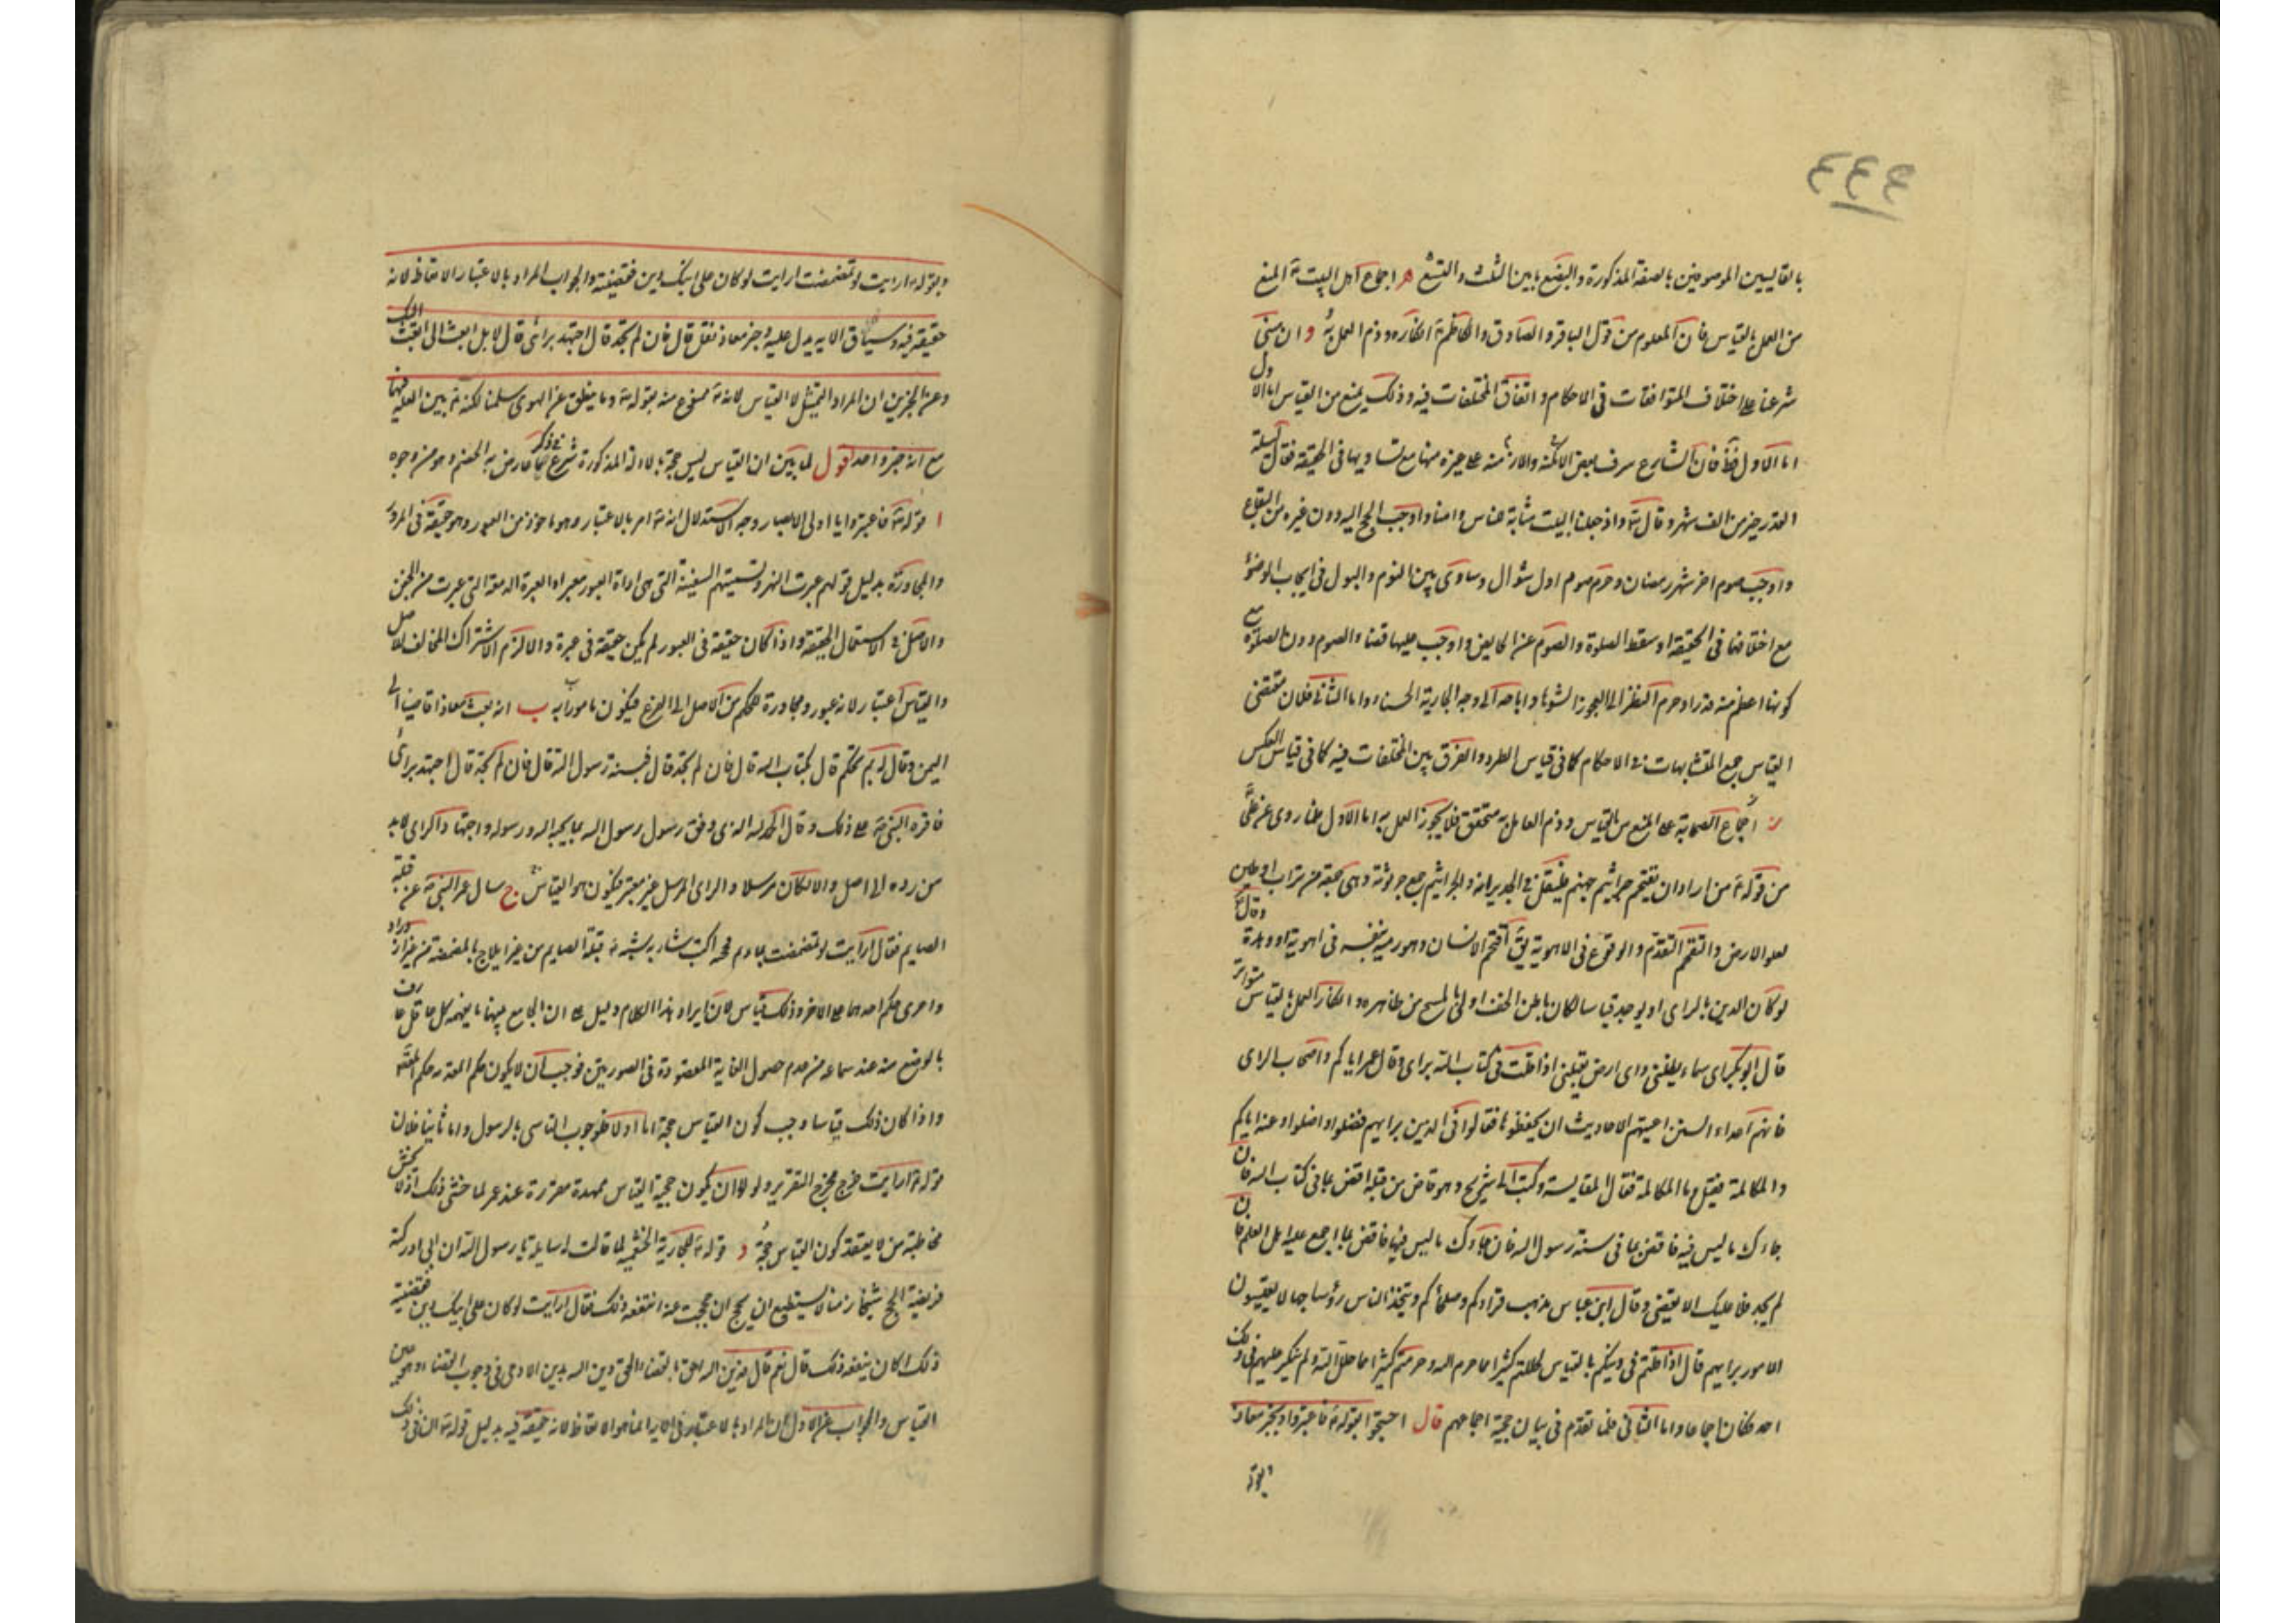 ٤٤٩
بالقايسين الموصوفين بالصفة المذكورة والبضع بين الثلث والتسع ه اجماع اهل البيت ع المنع
من العمل بالقياس فان المعلوم من قول الباقر والصادق والكاظم ع انكاره وذم العمل به و ان مبنى
شرعنا على اختلاف المتوافقات في الاحكام واتفاق المختلفات فيه وذلك يمنع من القياس اما الاول
اما الاول فظ فان الشارع شرف بعض الامكنة والازمنة على غيره منها مع تساويها في الحقيقة فقال ليلة
القدر خير من الف شهر وقال تع واذ جعلنا البيت مثابة للناس وامنا واوجب الحج اليه دون غيره من البقاع
واوجب صوم اخر شهر رمضان وحرم صوم اول شوال وساوى بين النوم والبول في ايجاب الوضوء
مع اختلافهما في الحقيقة واسقط الصلوة والصوم عن الحايض واوجب عليها قضاء الصوم دون الصلوة
كونها اعظم منه قدرا وحرم النظر الى العجوز الشوهاء واباحه الى وجه الجارية الحسناء واما الثاني فلان مقتضى
القياس جمع المتشابهات في الاحكام كما في قياس الطرد والفرق بين المختلفات فيه كما في قياس العكس
ز اجماع الصحابة على المنع من القياس وذم العامل به متحقق فلا يجوز العمل به اما الاول فلما روى عن علي
من قوله ع من اراد ان يقتحم جراثيم جهنم فليقل في الجد برايه والجراثيم جمع جرثومة وهي مجتمعة من تراب او طين
يعلو الارض والتقحم التقدم والوقوع في الاهوية يق اقتحم الانسان وهو رميه بنفسه في اهوية او وهدة وقال
لو كان الدين بالراى او يوجد قياسا لكان باطن الخف اولى بالمسح من ظاهره وانكار العمل بالقياس متواتر
قال ابو بكر اى سماء يظلنى واى ارض يقلنى اذا قلت في كتاب الله براى وقال عمر اياكم واصحاب الراى
فانهم اعداء السنن اعيتهم الاحاديث ان يحفظوها فقالوا في الدين برايهم فضلوا واضلوا وعنه اياكم
والمكايلة فقيل ما المكايلة فقال المقايسة وكتب الى شريح وهو قاض من قبله اقض بما في كتاب الله فان
جاءك ما ليس فيه فاقض بما في سنة رسول الله فان جاءك ما ليس فيها فاقض بما اجمع عليه اهل العلم فان
لم يجد فلا عليك الا تقضى وقال ابن عباس يذهب قراؤكم وصلحاؤكم ويتخذ الناس رؤسا جهالا يقيسون
الامور برايهم قال اذا قلتم في دينكم بالقياس احللتم كثيرا مما حرم الله وحرمتم كثيرا مما حلل الله ولم ينكر عليهم في ذلك
احد فكان اجماعا واما الثاني فلما تقدم في بيان حجية اجماعهم قال احتجوا بقوله تع فاعتبروا وبخبر معاذ
وبقوله
وبقوله ع ارايت لو تمضمضت ارايت لو كان على ابيك دين فقضيته والجواب المراد بالاعتبار الاتعاظ لانه
حقيقة فيه وسياق الايه يدل عليه وخبر معاذ نقل قال فان لم تجد قال اجتهد براى قال لا بل ابعث الى ابعث اليك
وعن الخبرين ان المراد التمثيل لا القياس لانه ع ممنوع منه بقوله تع وما ينطق عن الهوى سلمنا لكنه ع بين العلية فيها
مع انه خبر واحد اقول لما بين ان القياس ليس حجة بالادلة المذكورة شرع في ذكر ما عارض به الخصم وهو من وجوه
ا قوله تع فاعتبروا يا اولى الابصار وجه الاستدلال انه تع امر بالاعتبار وهو ماخوذ من العبور وهو حقيقة في المرور
والمجاوزة بدليل قولهم عبرت النهر وتسميتهم السفينة التي هي اداة العبور معبرا والعبرة الدمعة التي عبرت من الجفن
والاصل في الاستعمال الحقيقة واذا كان حقيقة في العبور لم يكن حقيقة في غيره والا لزم الاشتراك المخالف للاصل
والقياس اعتبار لانه عبور ومجاوزة للحكم من الاصل الى الفرع فيكون مامورا به ب انه بعث معاذا قاضيا الى
اليمن وقال له بم تحكم قال بكتاب الله قال فان لم تجد قال فبسنة رسول الله قال فان لم تجد قال اجتهد براى
فاقره النبي ص على ذلك وقال الحمد لله الذى وفق رسول رسول الله بما يحبه الله ورسوله واجتهاد الراى لابد
من رده الى اصل والا لكان مرسلا والراى المرسل غير معتبر فيكون هو القياس ج سال عمر النبي ص عن قبلة
الصايم فقال ارايت لو تمضمضت بماء ثم مججته اكنت شاربه شبه ص قبلة الصايم من غير ايلاج بالمضمضة من غير ازدراد
واجرى حكم احدهما على الاخر وذلك قياس فان ايراد هذا الكلام دليل على ان الجامع بينهما ما يفهمه كل عاقل عارف
بالوضع منه عند سماعه من عدم حصول الغاية المقصودة في الصورتين فوجب ان لا يكون حكم المقدمة حكم الغاية
واذا كان ذلك قياسا وجب كون القياس حجة اما اولا فلوجوب التاسى بالرسول واما ثانيا فلان
قوله ع ارايت خرج مخرج التقرير ولولا ان يكون حجية القياس ممهدة مقررة عند عمر لما حسن ذلك اذ لا يحسن
مخاطبة من لا يعتقد كون القياس حجة د قوله ع للجارية الخثعمية لما قالت له سايلة يا رسول الله ان ابى ادركته
فريضة الحج شيخا زمنا لا يستطيع ان يحج ان حججت عنه اينفعه ذلك فقال ارايت لو كان على ابيك دين فقضيته
ذلك اكان ينفعه ذلك قال نعم قال فدين الله احق بالقضاء الحق دين الله بدين الادمى في وجوب القضاء وهو عين
القياس والجواب عن الاول ان المراد بالاعتبار في الايه انما هو الاتعاظ لانه حقيقة فيه بدليل قوله تع ان في ذلك